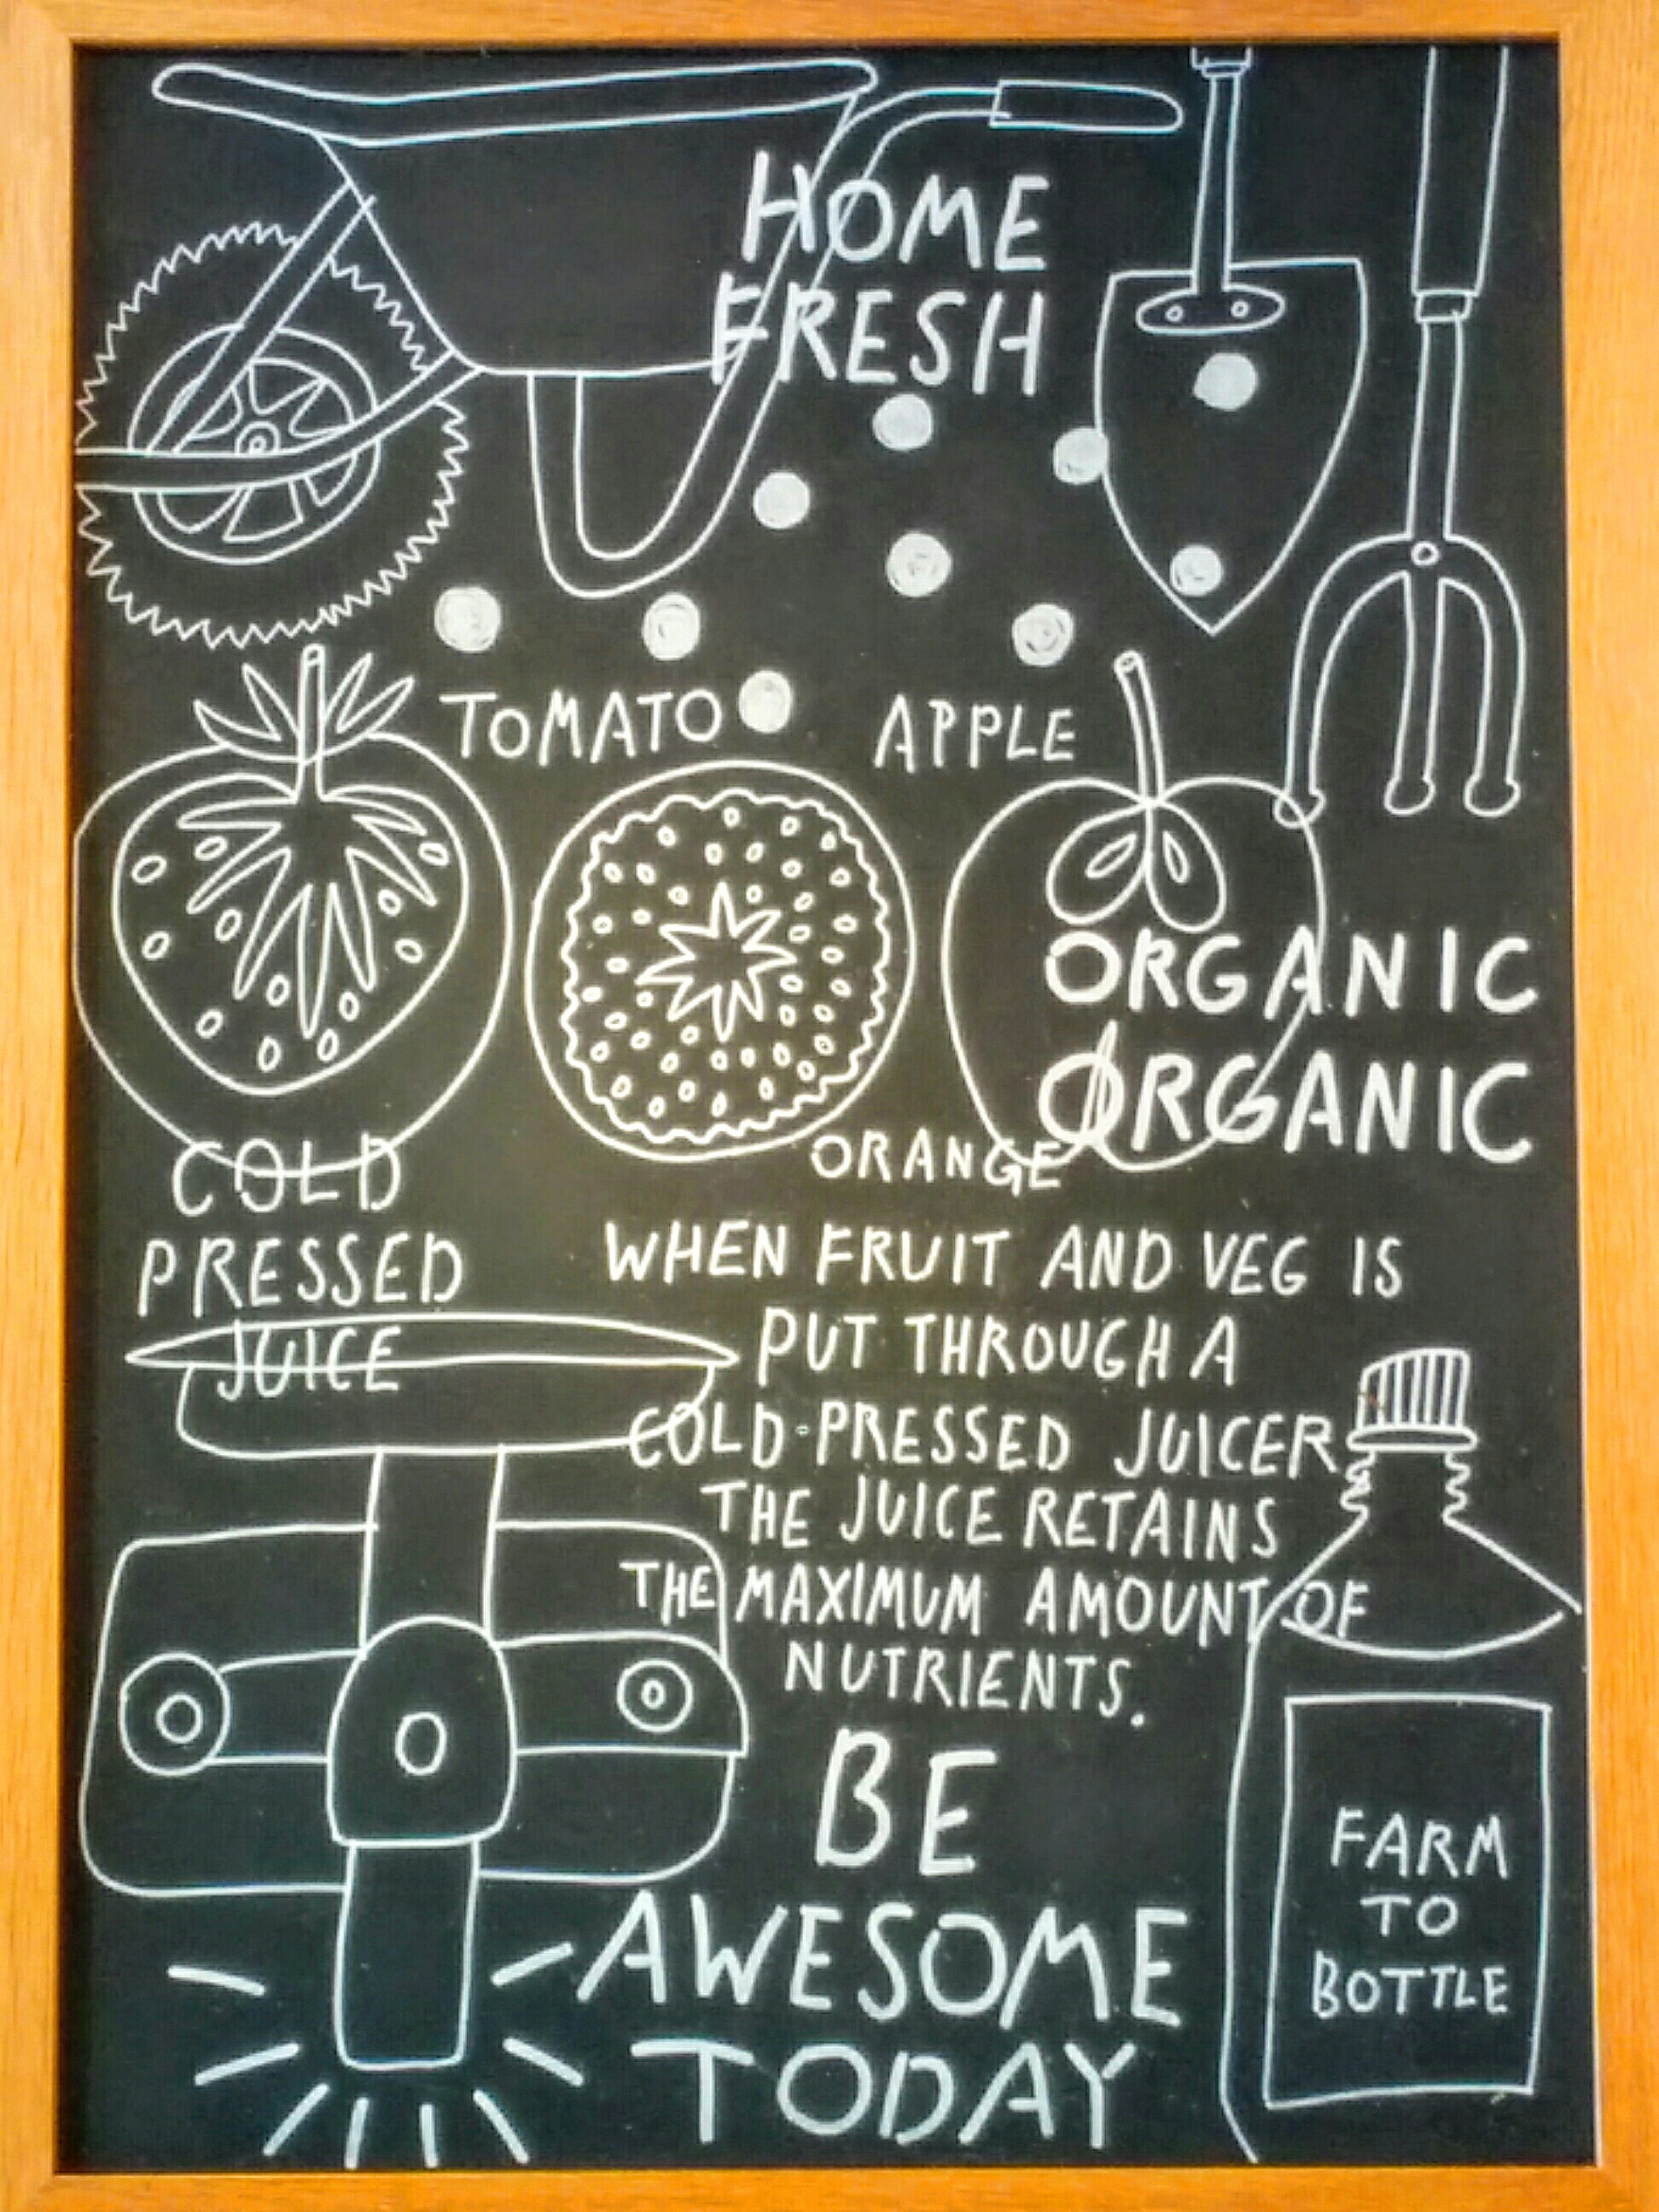 HOME
FRESH
TOMATO
APPLE
ORGANIC
ORGANIC
ORANGE
COLD
PRESSED
JUICE
WHEN FRUIT AND VEG IS
PUT THROUGH A
COLD-PRESSED JUICER
THE JUICE RETAINS
THE MAXIMUM AMOUNT OF
NUTRIENTS.
BE
AWESOME
TODAY
FARM
TO
BOTTLE